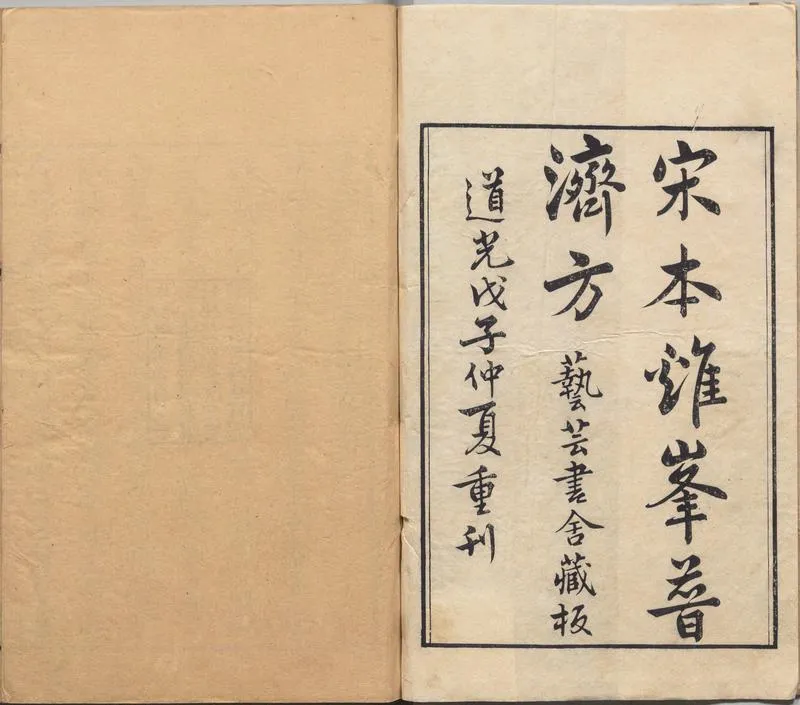 宋本雞峯普
濟方 藝芸書舍藏板
道光戊子仲夏重刋